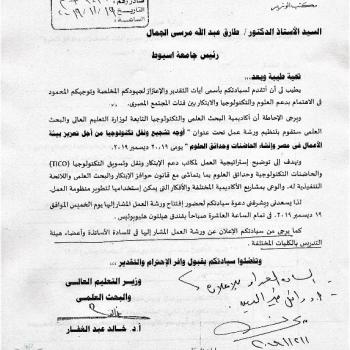 مكتب الوزير
صادر رقم
التاريخ ٢٠١٩/١١/١٩
الساعة
السيد الأستاذ الدكتور / طارق عبد الله مرسى الجمال
رئيس جامعة اسيوط
تحية طيبة وبعد...
يطيب لى أن أتقدم لسيادتكم بأسمى آيات التقدير والإعتزاز لجهودكم المخلصة وتوجيهكم المحمود
فى الاهتمام بدعم العلوم والتكنولوجيا والابتكار بين فئات المجتمع المصرى.
ويرجى الإحاطة أن أكاديمية البحث العلمى والتكنولوجيا التابعة لوزارة التعليم العالى والبحث
العلمى ستقوم بتنظيم ورشة عمل تحت عنوان " أوجه تشجيع ونقل تكنولوجيا من أجل تعزيز بيئة
الأعمال فى مصر وإنشاء الحاضنات وحدائق العلوم " يومى ١٩، ٢٠ ديسمبر ٢٠١٩.
ويهدف إلى توضيح إستراتيجية العمل لمكاتب دعم الإبتكار ونقل وتسويق التكنولوجيا (TICO)
والحاضنات التكنولوجية وحدائق العلوم بما يتماشى مع قانون حوافز الإبتكار والبحث العلمى واللائحة
التنفيذية له، والوعى بمشاريع الأكاديمية المختلفة والأفكار التى يمكن إستخدامها لتطوير منظومة العمل.
لذا يسعدنى ويشرفنى دعوة سيادتكم لحضور إفتتاح ورشة العمل المشار إليها يوم الخميس الموافق
١٩ ديسمبر ٢٠١٩، فى تمام الساعة العاشرة صباحاً بفندق هيلتون هليوبوليس.
كما يرجى من سيادتكم الإعلان عن ورشة العمل المشار إليها فى للسادة الأساتذة وأعضاء هيئة
التدريس بالكليات المختلفة.
وتفضلوا سيادتكم بقبول وافر الإحترام والتقدير...
وزير التعليم العالى
والبحث العلمى
أ.د. خالد عبد الغفار